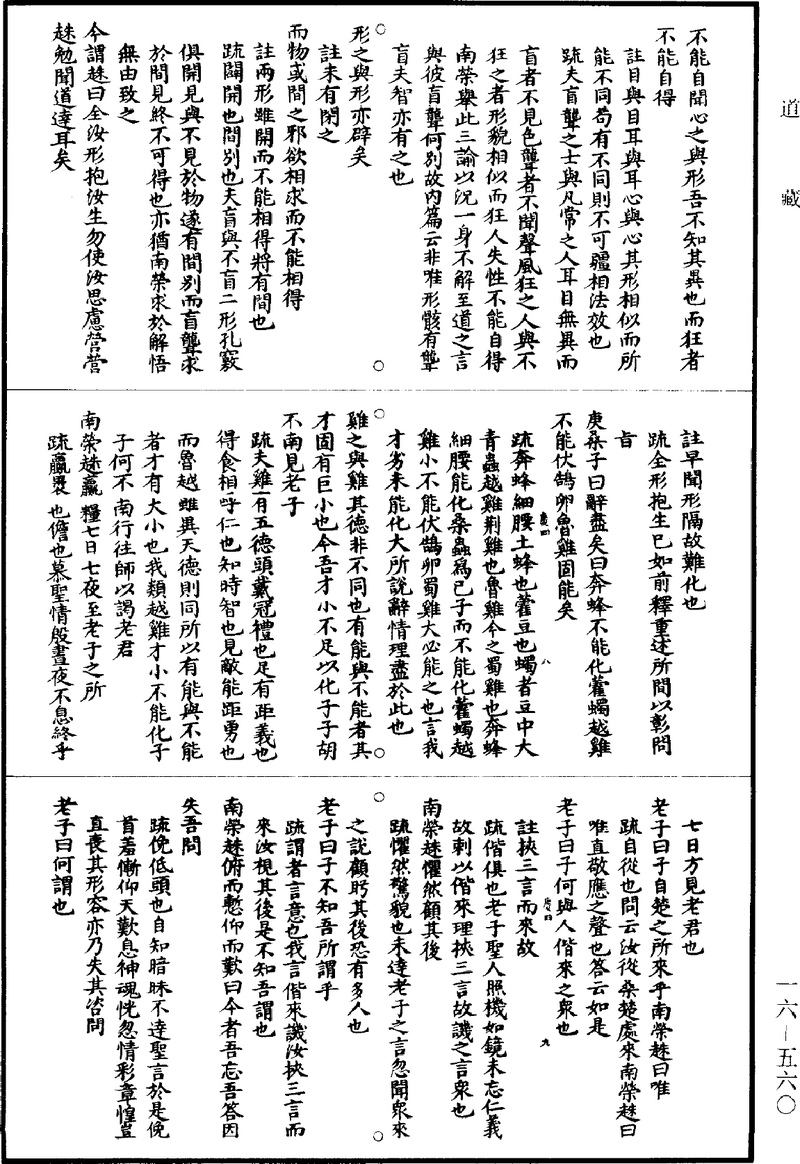 道藏
不能自聞心之與形吾不知其異也而狂者
不能自得
註目與目耳與耳心與心其形相似而所
能不同苟有不同則不可彊相法效也
疏夫盲聾之士與凡常之人耳目無異而
盲者不見色聾者不聞聲風狂之人與不
狂之者形貌相似而狂人失性不能自得
南榮舉此三諭以況一身不解至道之言
與彼盲聾何別故內篇云非唯形骸有聾
盲夫智亦有之也
形之與形亦辟矣
註未有閉之
而物或間之邪欲相求而不能相得
註兩形雖開而不能相得將有間也
疏闢開也間別也夫盲與不盲二形孔竅
俱開見與不見於物遂有間別而盲聾求
於聞見終不可得也亦猶南榮求於解悟
無由致之
今謂趎曰全汝形抱汝生勿使汝思慮營營
趎勉聞道達耳矣
註早聞形隔故難化也
疏全形抱生已如前釋重述所聞以彰問
旨
庚桑子曰辭盡矣曰奔蜂不能化藿蠋越雞
不能伏鵠卵魯雞固能矣
疏奔蜂細腰土蜂也藿豆也蠋者豆中大
青蟲越雞荆雞也魯雞今之蜀雞也奔蜂
細腰能化桑蟲爲己子而不能化藿蠋越
雞小不能伏鵠卵蜀雞大必能之也言我
才劣未能化大所說辭情理盡於此也
雞之與雞其德非不同也有能與不能者其
才固有巨小也今吾才小不足以化子子胡
不南見老子
疏夫雞有五德頭戴冠禮也足有距義也
得食相呼仁也知時智也見敵能距勇也
而魯越雖異天德則同所以有能與不能
者才有大小也我類越雞才小不能化子
子何不南行往師以謁老君
南榮趎贏糧七日七夜至老子之所
疏贏裹也儋也慕聖情殷晝夜不息終乎
七日方見老君也
老子曰子自楚之所來乎南榮趎曰唯
疏自從也問云汝從桑楚處來南榮趎曰
唯直敬應之聲也答云如是
老子曰子何與人偕來之衆也
註挾三言而來故
疏偕俱也老子聖人照機如鏡未忘仁義
故刺以偕來理挾三言故譏之言衆也
南榮趎懼然顧其後
疏懼然驚貌也未達老子之言忽聞衆來
之說顧眄其後恐有多人也
老子曰子不知吾所謂乎
疏謂者言意也我言偕來譏汝挾三言而
來汝視其後是不知吾謂也
南榮趎俯而慙仰而歎曰今者吾忘吾答因
失吾問
疏俛低頭也自知暗昧不達聖言於是俛
首羞慚仰天歎息神魂恍忽情彩章惶豈
直喪其形容亦乃失其咨問
老子曰何謂也
一六－五六〇